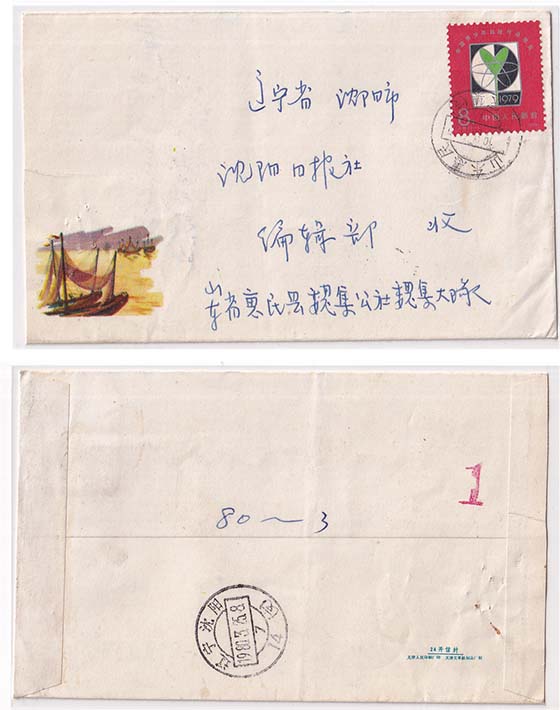 辽宁省 沈阳市
沈阳日报社
编辑部 收
山东省惠民县魏集公社魏集大队
8
1979
中国人民邮政
山东惠民
1
80～3
辽宁 沈阳
1980.3.25.8
7
14
24开信封